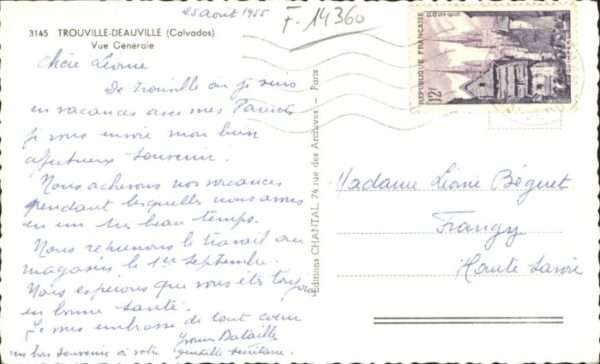 25 août 1955
F-14360
3145 TROUVILLE-DEAUVILLE (Calvados)
Vue Générale
Chère Léonie
De Trouville où je suis
en vacances avec mes Parents
je vous envoie mon bien
affectueux souvenir.
Nous achevons nos vacances
pendant lesquelles nous avons
eu un très beau temps.
Nous reprenons le travail au
magasin le 1er septembre.
Nous espérons que vous êtes toujours
en bonne santé.
Je vous embrasse de tout coeur
Bataille
un bon souvenir à votre gentille secrétaire.
Editions CHANTAL, 74 rue des Archives - Paris
RÉPUBLIQUE FRANÇAISE
POSTES
12F
Madame Léonie Béguet
Frangy
Haute Savoie